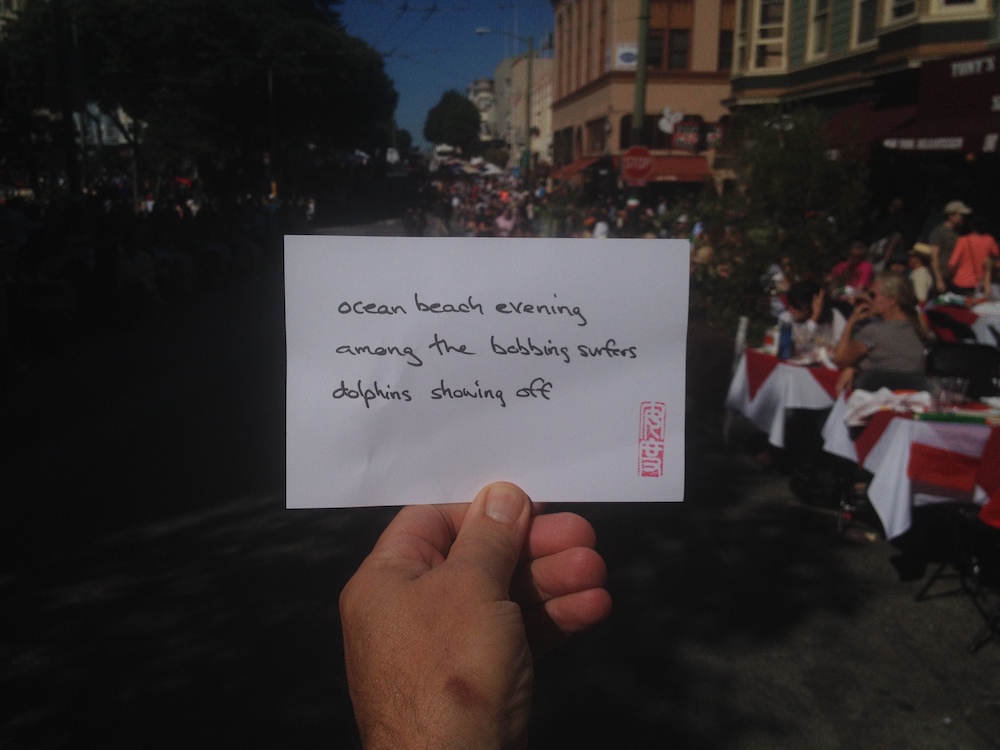 ocean beach evening
among the bobbing surfers
dolphins showing off
STOP
TONY'S